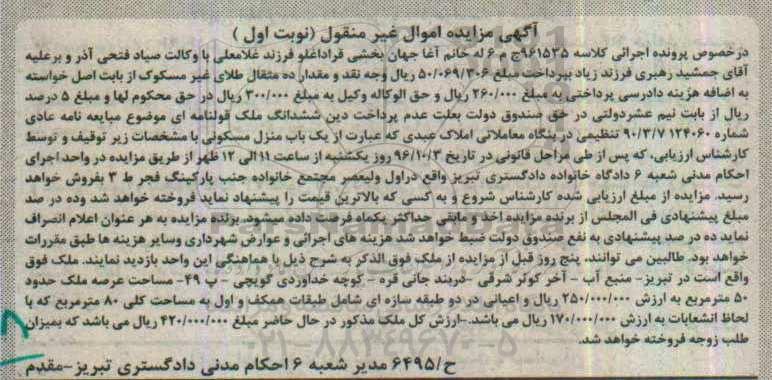 آگهی مزایده اموال غیر منقول (نوبت اول)
درخصوص پرونده اجرائی کلاسه ۹۶۱۵۳۵ج م ۶ له خانم آغا جهان بخشی قراداغلو فرزند غلامعلی با وکالت صیاد فتحی آذر و برعلیه
آقای جمشید رهبری فرزند زیاد بپرداخت مبلغ ۵۰/۰۶۹/۳۰۶ ریال وجه نقد و مقدار ده مثقال طلای غیر مسکوک از بابت اصل خواسته
به اضافه هزینه دادرسی پرداختی به مبلغ ۲۶۰/۰۰۰ ریال و حق الوکاله وکیل به مبلغ ۳۰۰/۰۰۰ ریال در حق محکوم لها و مبلغ ۵ درصد
ریال از بابت نیم عشردولتی در حق صندوق دولت بعلت عدم پرداخت دین ششدانگ ملک قولنامه ای موضوع مبایعه نامه عادی
شماره ۱۲۴۰۶۰ ۹۰/۳/۷ تنظیمی در بنگاه معاملاتی املاک عبدی که عبارت از یک باب منزل مسکونی با مشخصات زیر توقیف و توسط
کارشناس ارزیابی، که پس از طی مراحل قانونی در تاریخ ۹۶/۱۰/۳ روز یکشنبه از ساعت ۱۱ الی ۱۲ ظهر از طریق مزایده در واحد اجرای
احکام مدنی شعبه ۶ دادگاه خانواده دادگستری تبریز واقع دراول ولیعصر مجتمع خانواده جنب پارکینگ فجر ط ۳ بفروش خواهد
رسید. مزایده از مبلغ ارزیابی شده کارشناس شروع و به کسی که بالاترین قیمت را پیشنهاد نماید فروخته خواهد شد وده در صد
مبلغ پیشنهادی فی المجلس از برنده مزایده اخذ و مابقی حداکثر یکماه فرصت داده میشود. برنده مزایده به هر عنوان اعلام انصراف
نماید ده در صد پیشنهادی به نفع صندوق دولت ضبط خواهد شد هزینه های اجرائی و عوارض شهرداری وسایر هزینه ها طبق مقررات
خواهد بود. طالبین می توانند، پنج روز قبل از مزایده از ملک فوق الذکر به شرح ذیل با هماهنگی این واحد بازدید نمایند. ملک فوق
واقع است در تبریز- منبع آب - آخر کوثر شرقی -دربند جانی قره - کوچه خداوردی گویچی - پ ۴۹- مساحت عرصه ملک حدود
۵۰ مترمربع به ارزش ۲۵۰/۰۰۰/۰۰۰ ریال و اعیانی در دو طبقه سازه ای شامل طبقات همکف و اول به مساحت کلی ۸۰ مترمربع که با
لحاظ انشعابات به ارزش ۱۷۰/۰۰۰/۰۰۰ ریال می باشد.-ارزش کل ملک مذکور در حال حاضر مبلغ ۴۲۰/۰۰۰/۰۰۰ ریال می باشد که بمیزان
طلب زوجه فروخته خواهد شد.
ح/۶۴۹۵ مدیر شعبه ۶ احکام مدنی دادگستری تبریز-مقدم
ParsNamadData
۰۲۱-۸۸۳۴۹۶۷۰-۵